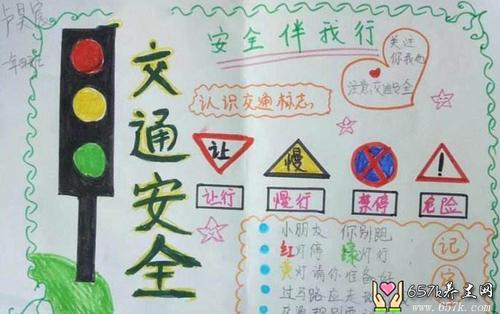 卢昊
安全伴我行
关注
你我他
注意交通安全
交通安全
认识交通标志
让
慢
!
让行
慢行
禁停
危险
小朋友 你别跑
红灯停 绿灯行
黄灯请你准备好
过马路应走
记
657k养生网
www.657k.com